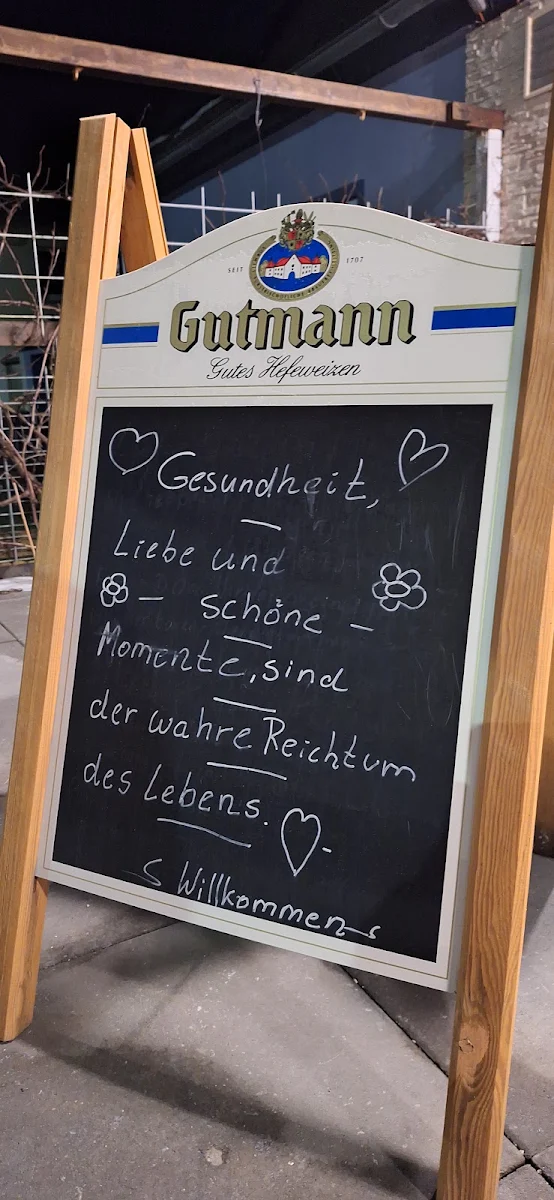 SEIT 1707
Gutmann
Gutes Hefeweizen
Gesundheit,
Liebe und
- schöne -
Momente, sind
der wahre Reichtum
des Lebens.
Willkommen